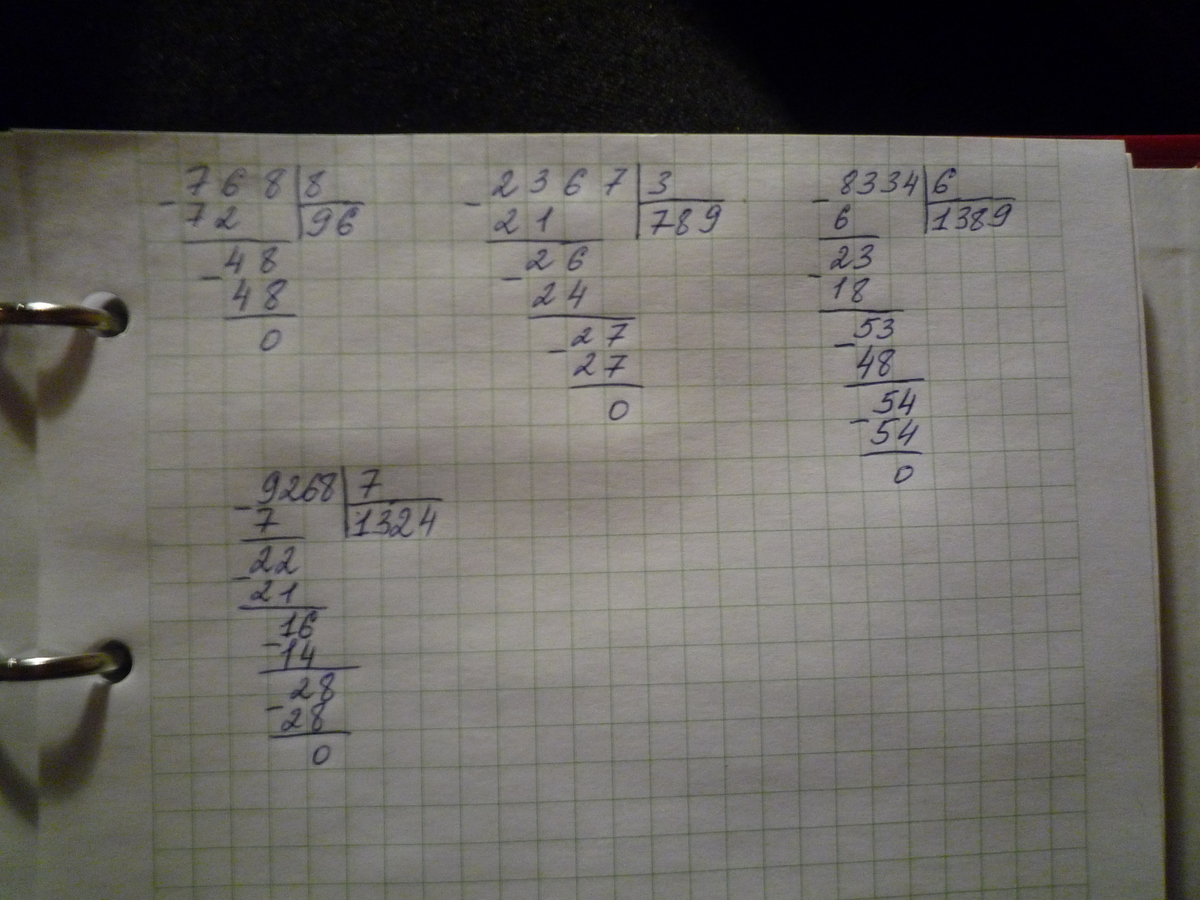 - 768 | 8
72 | 96
- 48
48
0
- 2367 | 3
21 | 789
- 26
24
- 27
27
0
- 8334 | 6
6 | 1389
- 23
18
- 53
48
- 54
54
0
- 9268 | 7
7 | 1324
- 22
21
- 16
14
- 28
28
0